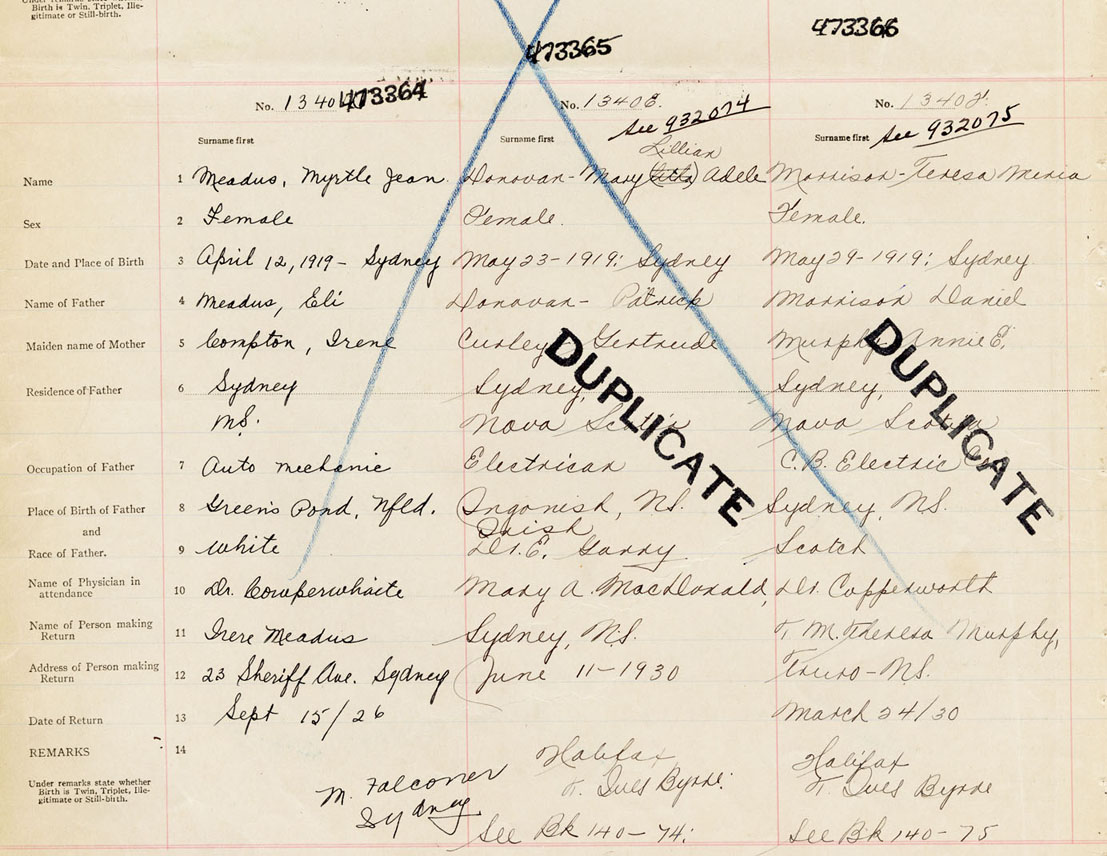 Under remarks state whether
Birth is Twin, Triplet, Ille-
gitimate or Still-birth.
473365
473366
No. 1340 473364
No. 1340E.
See 932074
No. 1340F.
See 932075
Surname first
Surname first
Surname first
Lillian
Name 1 Meadus, Myrtle Jean Donovan- Mary Adele Morrison-Teresa Minia
Sex 2 Female Female. Female.
Date and Place of Birth 3 April 12, 1919- Sydney May 23-1919: Sydney May 29-1919: Sydney.
Name of Father 4 Meadus, Eli Donovan- Patrick Morrison Daniel
Maiden name of Mother 5 Compton, Irene Curley Gertrude Murphy Annie E.
Residence of Father 6 Sydney Sydney, Sydney,
N.S. Nova Scotia Nova Scotia
DUPLICATE
DUPLICATE
Occupation of Father 7 Auto mechanic Electrican C.B. Electric Co
Place of Birth of Father 8 Green's Pond, Nfld. Ingonish, N.S. Sydney, N.S.
and
Irish
Race of Father. 9 White Dr. E. Garry Scotch
Name of Physician in
attendance 10 Dr. Cowperwhaite Mary A. MacDonald, Dr. Copperworth
Name of Person making
Return 11 Irere Meadus Sydney, N.S. T. M. Theresa Murphy,
Address of Person making
Return 12 23 Sheriff Ave. Sydney June 11-1930 Truro-N.S.
Date of Return 13 Sept 15/26 March 24/30
REMARKS 14
Under remarks state whether
Birth is Twin, Triplet, Ille-
gitimate or Still-birth.
M. Falconer
Sydney
Halifax
T. Ives Byrne.
See Bk 140-74.
Halifax
T. Ives Byrne
See Bk 140-75